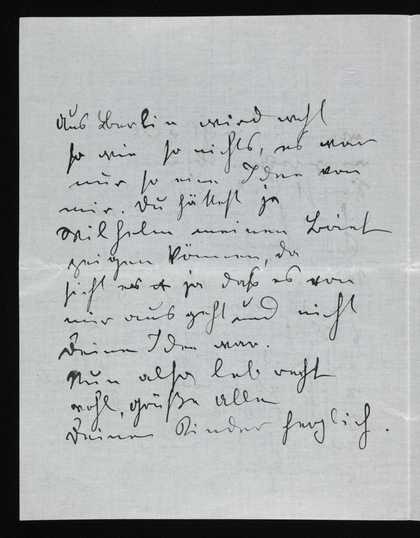 aus Berlin wird wohl
so wie so nichts, es war
nur so eine Idee von
mir. Du hättest ja
Wilhelm meinen Brief
zeigen können, da
sieht er ja daß es von
mir ausgeht und nicht
Deine Idee war.
Nun also leb recht
wohl, grüße alle
Deine Kinder herzlich.